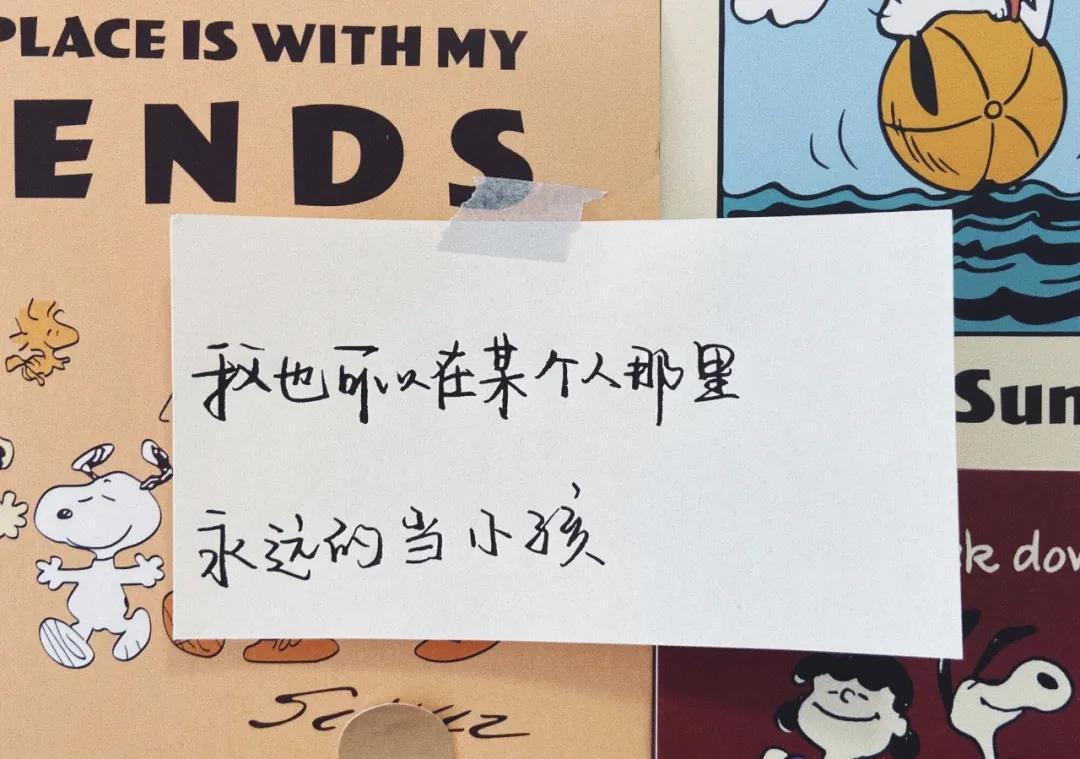 PLACE IS WITH MY
ENDS
我也可以在某个人那里
永远的当小孩
Sun
k dow